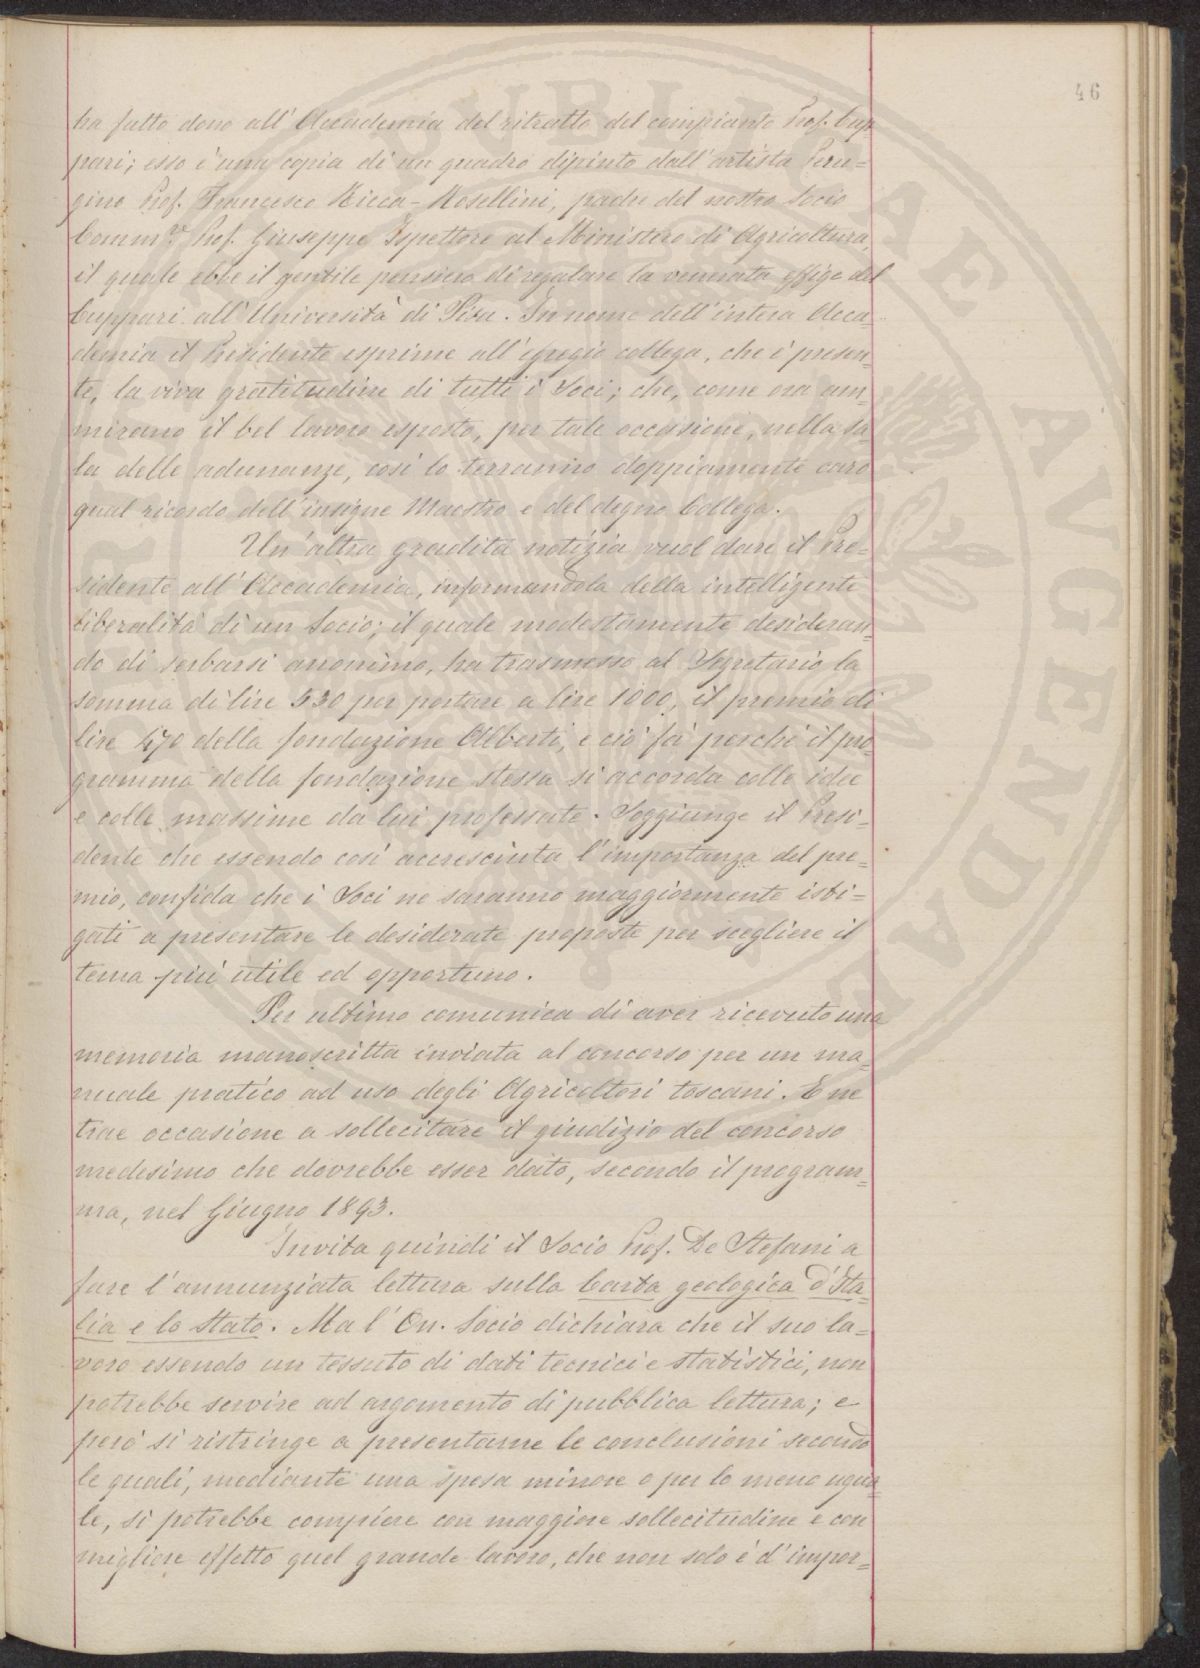 46
ha fatto dono all'Accademia del ritratto del compianto Prof. Cup-
pari; esso è una copia di un quadro dipinto dall'artista Peru=
gino Prof. Francesco Ricca-Rosellini, padre del nostro Socio
Comm.re Prof. Giuseppe Ispettore al Ministero di Agricoltura,
il quale ebbe il gentile pensiero di regalare la venerata effige del
Cuppari all'Università di Pisa. In nome dell'intera Acca-
demia il Presidente esprime all'egregio collega, che è presen-
te, la viva gratitudine di tutti i Soci; che, come ora am-
mirano il bel lavoro esposto, per tale occasione, nella sa
la delle adunanze, così lo terranno doppiamente caro
qual ricordo dell'insigne Maestro e del degno Collega.
Un'altra gradita notizia vuol dare il Pre=
sidente all'Accademia, informandola della intelligente
liberalità di un Socio; il quale modestamente desideran-
do di serbarsi anonimo, ha trasmesso al Segretario la
somma di lire 530 per portare a lire 1000, il premio di
lire 470 della fondazione Alberti, e ciò fa perchè il pro-
gramma della fondazione stessa si accorda colle idee
e colle massime da lui professate. Soggiunge il Presi-
dente che essendo così accresciuta l'importanza del pre=
mio, confida che i Soci ne saranno maggiormente isti=
gati a presentare le desiderate proposte per scegliere il
tema più utile ed opportuno.
Per ultimo comunica di aver ricevuto una
memoria manoscritta inviata al concorso per un ma-
nuale pratico ad uso degli Agricoltori toscani. E ne
trae occasione a sollecitare il giudizio del concorso
medesimo che dovrebbe esser dato, secondo il program=
ma, nel Giugno 1893.
Invita quindi il Socio Prof. De Stefani a
fare l'annunziata lettura sulla Carta geologica d'Ita-
lia e lo Stato. Ma l'On. Socio dichiara che il suo la=
voro essendo un tessuto di dati tecnici e statistici, non
potrebbe servire ad argomento di pubblica lettura; e
però si ristringe a presentarne le conclusioni secondo
le quali, mediante una spesa minore o per lo meno ugua-
le, si potrebbe compiere con maggiore sollecitudine e con
migliore effetto quel grande lavoro, che non solo è d'impor=